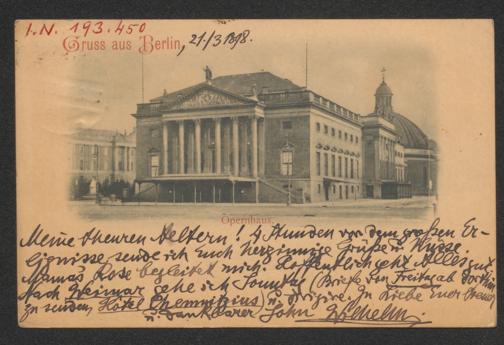 I.N. 193.450
Gruss aus Berlin, 21/3 1898.
Opernhaus.
Meine theuren Aeltern! 4 Stunden vor dem großen Er-
eignisse sende ich Euch herzinnige Grüße u. Küsse.
Mamas Rose begleitet mich. Hoffentlich geht Alles gut.
Nach Weimar gehe ich Sonntag (Briefe von Freitag ab dorthin
zu senden, Hôtel Chemnitius) u. dirigire. In Liebe Euer treuer
u. dankbarer Sohn Wilhelm.